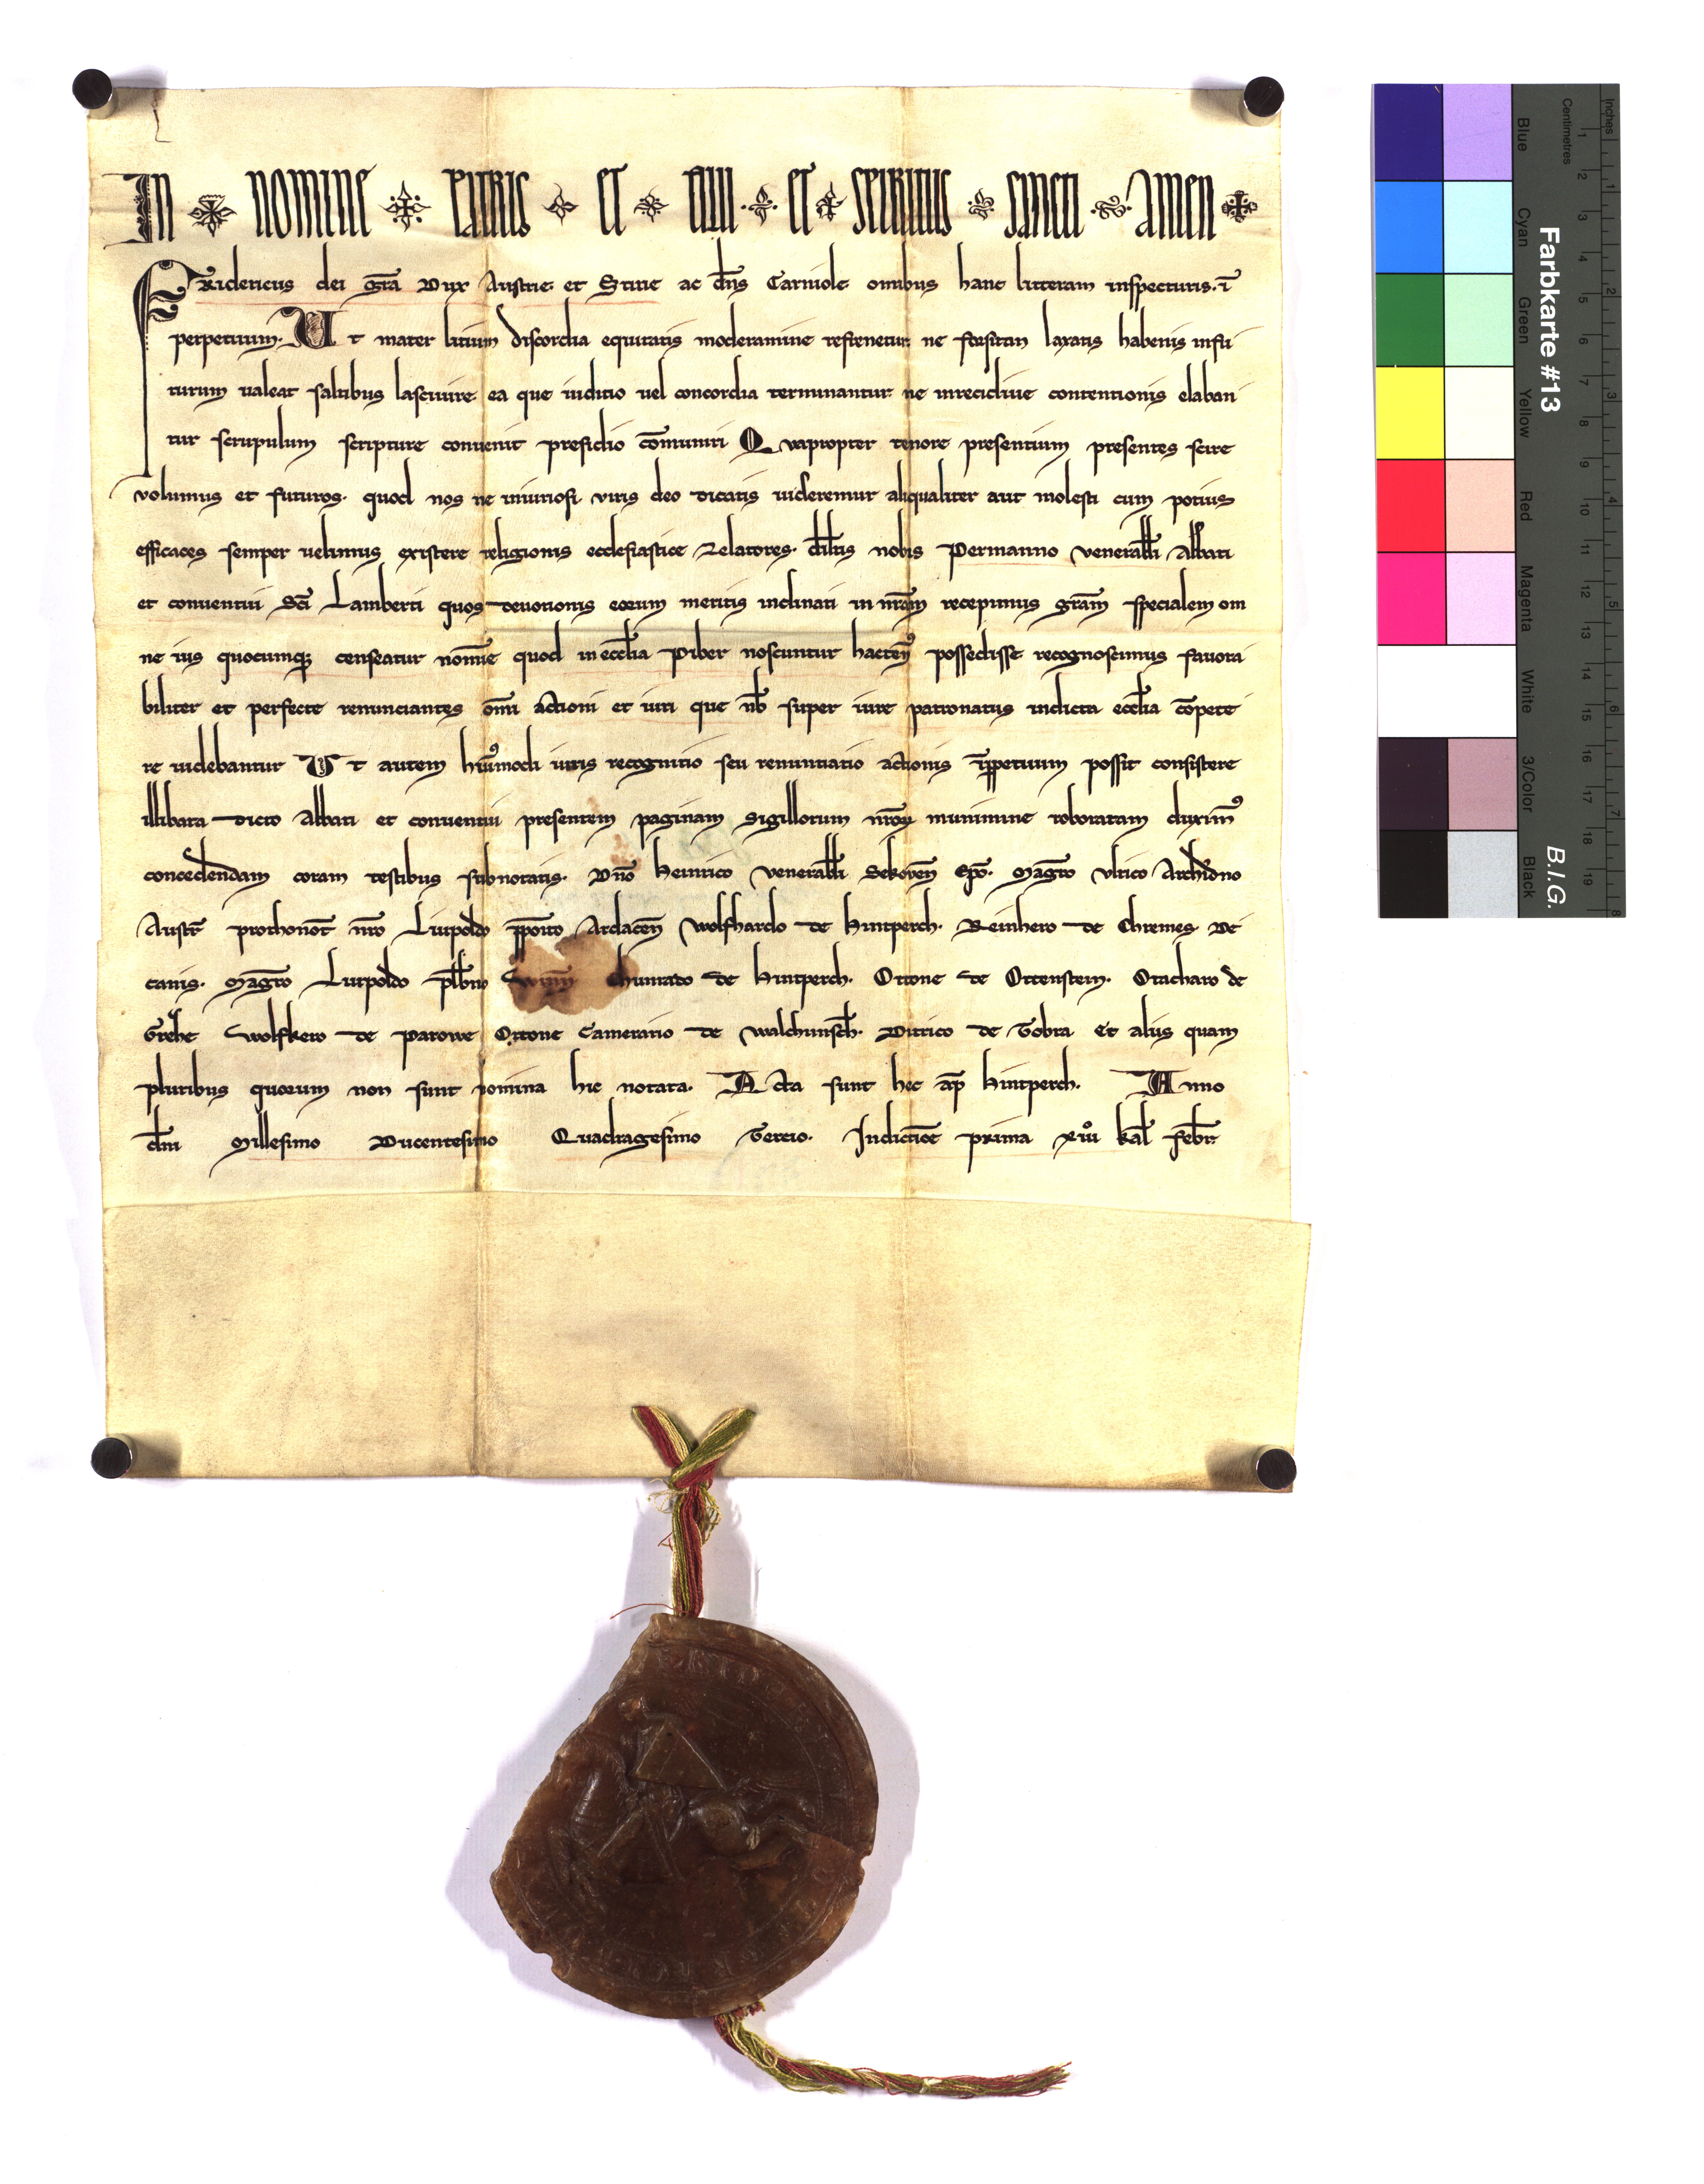 In nomine patris et filii et spiritus sancti amen
Fridericus dei gr̄a Dux Austrie et Stirie ac dn̄s Carniole omnibus hanc litteram inspecturis. ī
perpetuum. Ut mater litium discordia equitatis moderamine refrenetur ne forsitan laxatis habenis infu
turum ualeat saltibus lasciuire ea que iuditio uel concordia terminantur ne inrecidiue contentionis elaban
tur scrupulum scripture conuenit presidio co̅muniri Quapropter tenore presentium presentes scire
volumus et futuros. quod nos ne iniuriosi viris deo dicatis uideremur aliqualiter aut molesti cum potius
efficaces semper uelimus existere religionis ecclesiastice zelatores. dilc̄tis nobis Permanno venerab̄li Abbati
et conuentui sc̄i Lamberti quos deuotionis eorum meritis inclinati in nr̄am recepimus gr̄am specialem om
ne ius quocumq; censeatur nomīe quod in eccl̄ia Piber noscuntur hactenꝰ possedisse recognoscimus fauora
biliter et perfecte renunciantes om̄i actioni et iuri que nb̄ super iure patronatus indicta eccl̄ia co̅pete
re uidebantur Ut autem huiꝰmodi iuris recognitio seu renuntiatio actionis īp̄petuum possit consistere
illibata dicto Abbati et conuentui presentem paginam sigillorum nr̄oꝝ munimine roboratam duximꝰ
concedendam coram testibus subnotatis. Dn̄o Heinrico venerab̄li Sekoven̄ Ep̄o. Magr̄o vlrico Archid̄no
Austr̄ prothonot̄ nr̄o Liupoldo p̄posito Ardacen̄ Wolfhardo de Hintperch. Reinhero de Chremes. De
canis. Magr̄o Lupoldo pleb̄no Chunrado de Hintperch. Ottone de Ottenstein. Otacharo de
Grehe Wolfkero de Parowe Ottone Camerario de Walchunsch̄. Ditrico de Tobra Et aliis quam
pluribus quorum non sunt nomina hic notata. Acta sunt hec ap̄ Hintperch. Anno
dn̄i Millesimo Ducentesimo Quadragesimo Tercio. Indictio̅e prima xiiii kal̄ Febr̄
Farbkarte #13
B.I.G.
Inches
Centimetres
Blue
Cyan
Green
Yellow
Red
Magenta
White
3/Color
Black
1 2 3 4 5 6 7 8 9 10 11 12 13 14 15 16 17 18 19
1 2 3 4 5 6 7 8